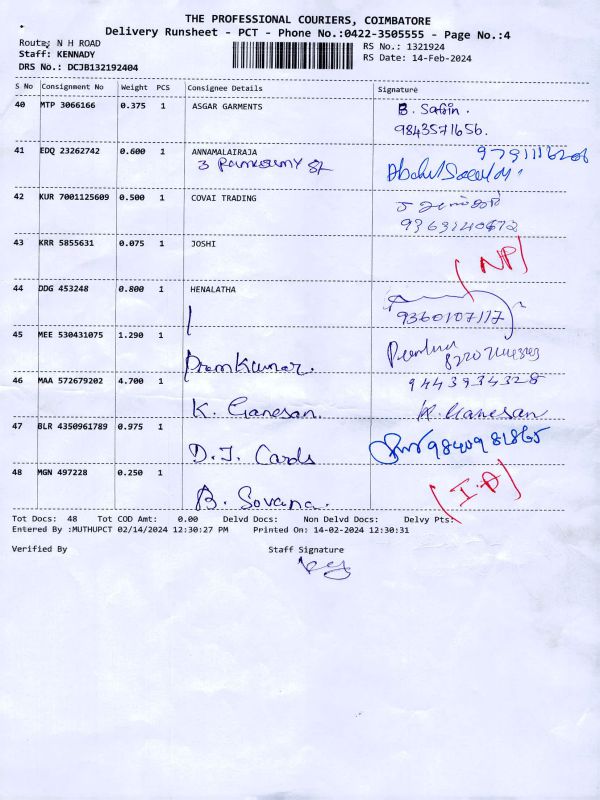 THE PROFESSIONAL COURIERS, COIMBATORE
Delivery Runsheet - PCT - Phone No.:0422-3505555 - Page No.:4
Route: N H ROAD
Staff: KENNADY
DRS No.: DCJB132192404
RS No.: 1321924
RS Date: 14-Feb-2024
S No Consignment No Weight PCS Consignee Details Signature
40 MTP 3066166 0.375 1 ASGAR GARMENTS B. Safin.
9843571656.
41 EDQ 23262742 0.600 1 ANNAMALAIRAJA 9791116206
3
42 KUR 7001125609 0.500 1 COVAI TRADING
43 KRR 5855631 0.075 1 JOSHI (NP)
44 DDG 453248 0.800 1 HENALATHA
9360107117
45 MEE 530431075 1.290 1
PremKumar.
46 MAA 572679202 4.700 1 9443934328
K. Ganesan. K. Ganesan
47 BLR 4350961789 0.975 1 9840981865
D.J. Cards
48 MGN 497228 0.250 1 (I.A)
B. Sovana.
Tot Docs: 48 Tot COD Amt: 0.00 Delvd Docs: Non Delvd Docs: Delvy Pts:
Entered By :MUTHUPCT 02/14/2024 12:30:27 PM Printed On: 14-02-2024 12:30:31
Verified By Staff Signature